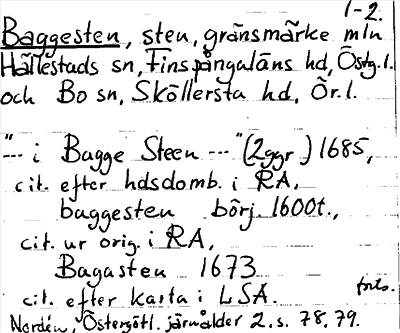 1-2.
Baggesten, sten, gränsmärke mln
Hällestads sn, Finspångaläns hd, Östg.l.
och Bo sn, Sköllersta hd, Ör.l.
"--- i Bagge Steen ---" (2ggr) 1685,
cit. efter hdsdomb. i RA,
baggesten börj. 1600t.,
cit. ur orig. i RA,
Bagasten 1673
cit. efter karta i LSA. forts.
Nordén, Östergötl. järnålder 2. s. 78, 79.